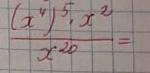 (x⁴)⁵ · x²
x²⁰ =